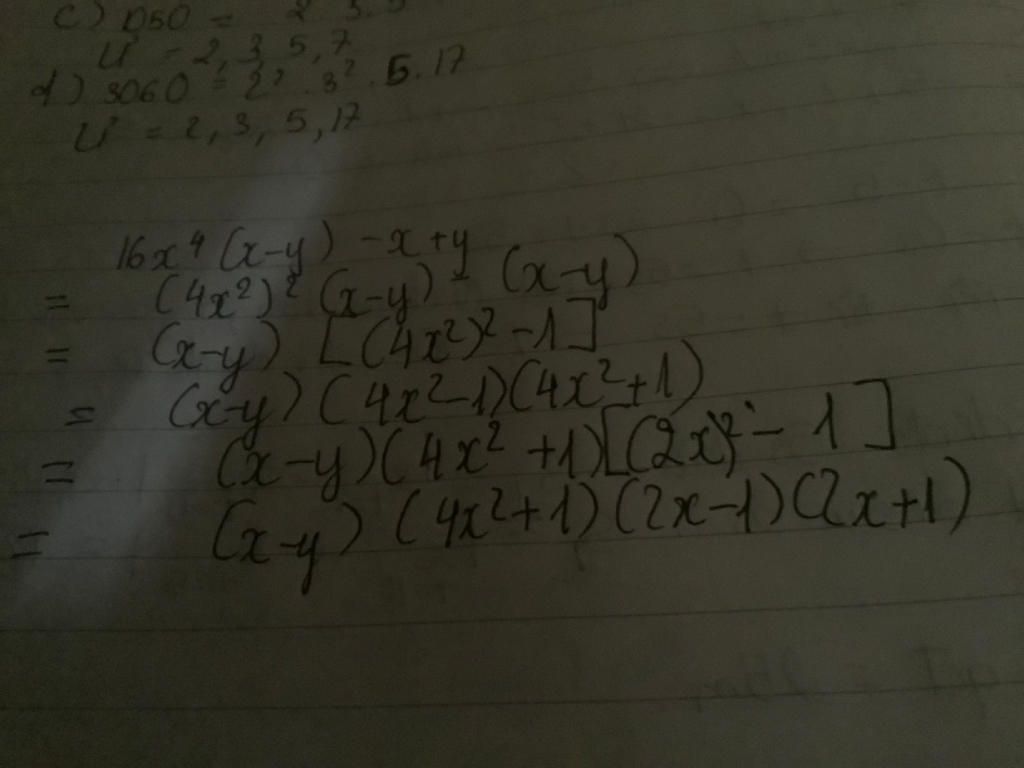 c) 1050 = 2 3.5
Ư = 2, 3 5, 7
d) 3060 = 2² . 3² . 5 . 17
Ư = 2, 3, 5, 17
16x⁴ (x-y) -x +y
= (4x²)² (x-y) - (x-y)
= (x-y) [(4x²)² -1]
= (x-y) (4x²-1)(4x²+1)
= (x-y)(4x² +1)[(2x)² - 1]
= (x-y) (4x²+1)(2x-1)(2x+1)